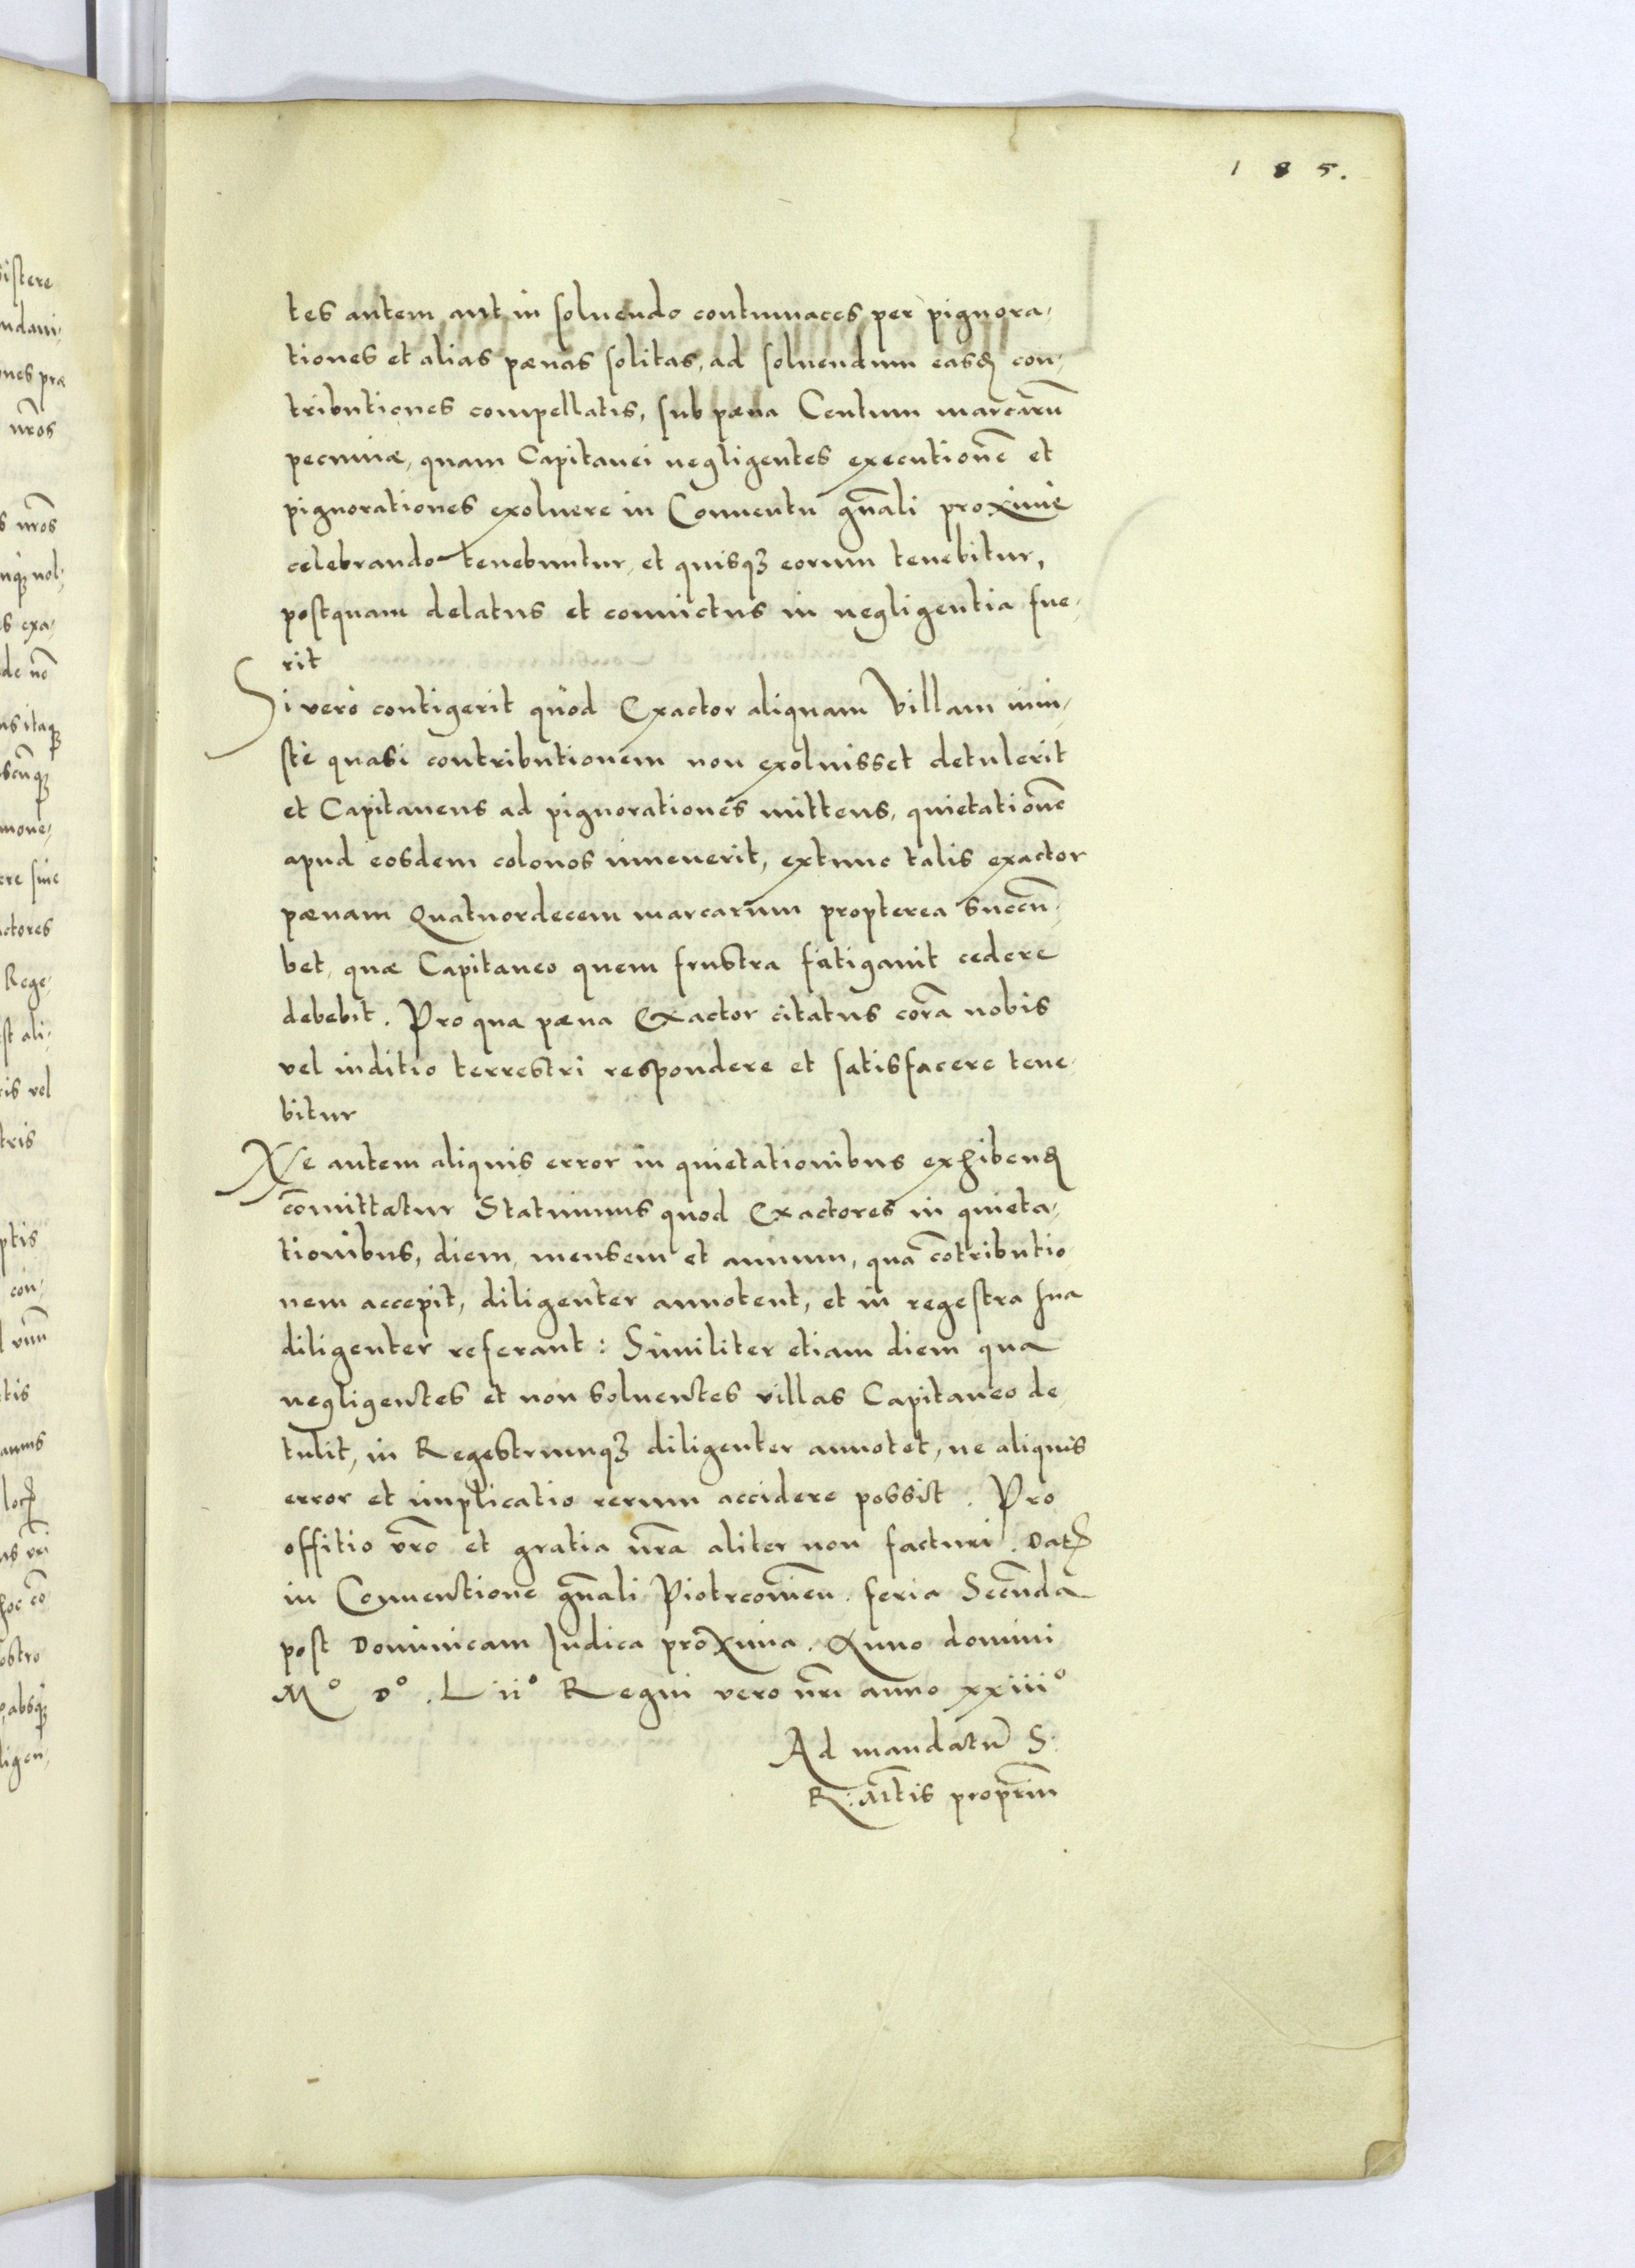 185.
tes autem aut in soluendo contumaces per pignora,
tiones et alias pœnas solitas, ad soluendum easdꝫ con,
tributiones compellatis, sub pœna Centum marcarū
pecuniæ, quam Capitanei negligentes executionē et
pignorationes exoluere in Conuentu gn̄ali proximè
celebrando tenebuntur, et quisqꝫ eorum tenebitur,
postquam delatus et conuictus in negligentia fue,
rit
Si verò contigerit quòd Exactor aliquam Villam iniu,
stè quasi contributionem non exoluisset detulerit
et Capitaneus ad pignorationes mittens, quietationē
apud eosdem colonos inuenerit, extunc talis exactor
pœnam Quatuordecem marcarum propterea succū,
bet, quæ Capitaneo quem frustra fatigauit cedere
debebit. Pro qua pœna Exactor citatus corā nobis
vel iuditio terrestri respondere et satisfacere tene,
bitur
Ne autem aliquis error in quietationibus exhibendꝫ
cōmittatur Statuimus quod Exactores in quieta,
tionibus, diem, mensem et annum, qua cōtributio,
nem accepit, diligenter annotent, et in regestra sua
diligenter referant: Similiter etiam diem qua
negligentes et non soluentes villas Capitaneo de,
tulit, in Regestrumqꝫ diligenter annotet, ne aliquis
error et implicatio rerum accidere possit. Pro
offitio vr̄o et gratia nr̄a aliter non facturi. Datꝭ
in Conuentione gn̄ali Piotrcouien̄. feria Secūnda
post Dominicam Iudica proxima. Anno domini
Mº Dº. Liiº Regni vero nr̄i anno xxiiiº
Ad mandatū S:
R: M̄tis propriū
istere
ndaui,
ones præ
nr̄os
s nr̄os
nqꝫ nol,
s exa,
de nō
us itaqꝫ
scūqꝫ
mone,
ere siue
actores
Rege,
st ali,
ris vel
tris
ptis
con,
l vnū
tis
amus
locꝭ
us vr̄i
hoc cō
ostro
, absqꝫ
ligen,